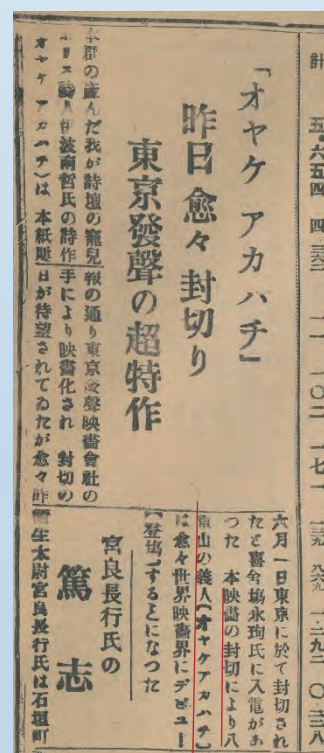 計 五・六五四
「オヤケ アカハチ」
昨日愈々封切り
東京發聲の超特作
本郡の産んだ我が詩壇の寵兒
詩人伊波南哲氏の詩作
オヤケ アカハチ)は 本紙既
報の通り東京發聲映畫會社の
手により映畫化され 封切の
日が待望されてゐたが愈々昨
六月一日東京に於て封切され
たと喜舍場永珣氏に入電があ
つた 本映畫の封切により八
重山の義人(オヤケアカハチ
は愈々世界映畫界にデビュー
(登場)することになつた
宮良長行氏の
篤志
衛生大尉宮良長行氏は石垣町